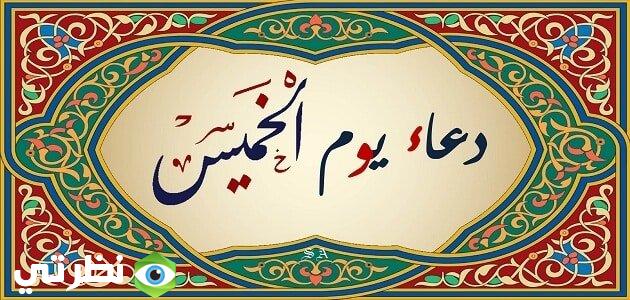 دعاء يوم الخميس
SA
نظرتي